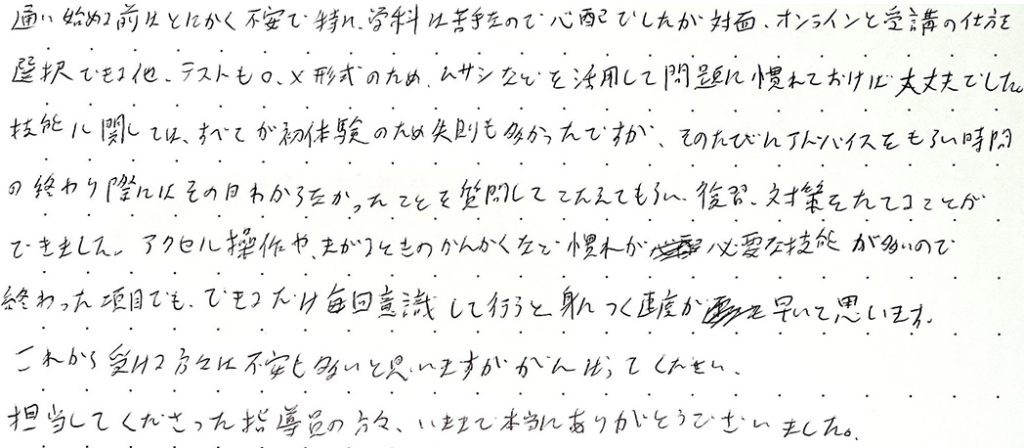 通い始める前はとにかく不安で特に、学科は苦手なので心配でしたが対面、オンラインと受講の仕方を
選択できる他、テストも○、×形式のため、ムサシなどを活用して問題に慣れておけば大丈夫でした。
技能に関しては、すべてが初体験のため失敗も多かったですが、そのたびにアドバイスをもらい時間
の終わり際にはその日わからなかったことを質問してこたえてもらい、復習、対策をたてることが
できました。アクセル操作や、まがるときのかんかくなど慣れが必要な技能が多いので
終わった項目でも、できるだけ毎回意識して行うと身につく速度が早いと思います。
これから受ける方々は不安も多いと思いますががんばってください。
担当してくださった指導員の方々、いままで本当にありがとうございました。